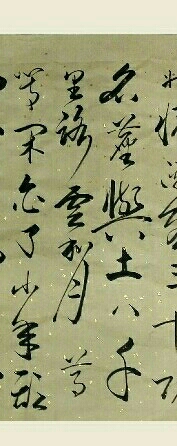 壯懷激烈三十功
名塵與土八千
里路雲和月莫
等閒白了少年頭